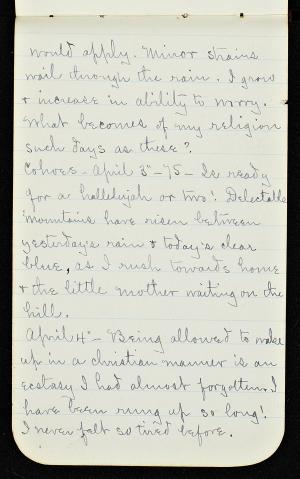 would apply. Minor strains
wail through the rain. I grow
& increase in ability to worry.
What becomes of my religion
such days as these?
Cohoes - April 3" - 75 - Is ready
for a hallelujah or two! Delectable
mountains have risen between
yesterday's rain & today's clear
blue, as I rush towards home
& the little mother waiting on the
hill.
April 4" - Being allowed to wake
up in a christian manner is an
ecstasy I had almost forgotten. I
have been rung up so long!
I never felt so tired before.